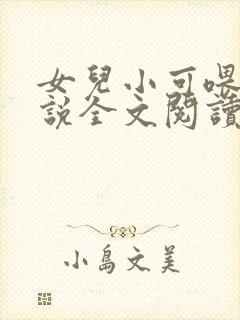 女兒小可喂
說全文閱讀
小島文美